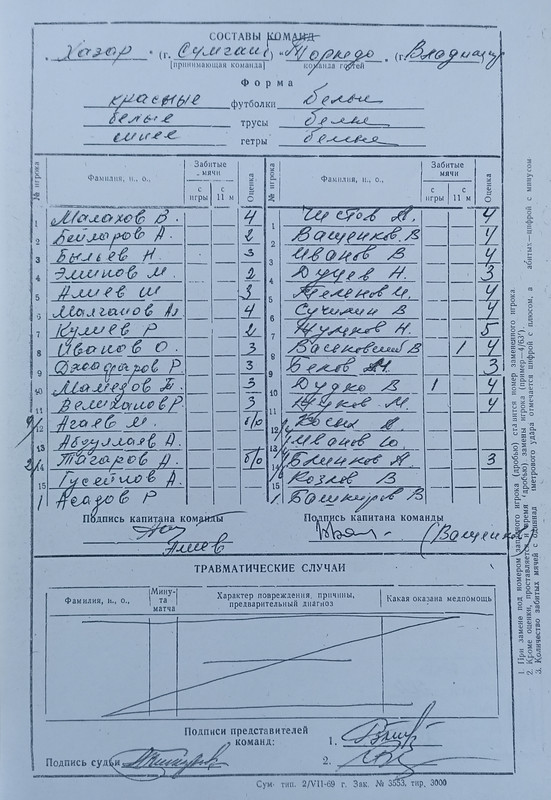 СОСТАВЫ КОМАНД
„ Хазар " (г. Сумгаит) „ Торпедо " (г. Владимир
[принимающая команда] команда гостей
Форма
красные футболки белые
белые трусы белые
синее гетры белые
№ игрока Фамилия, и., о., Забитые мячи с игры с 11 м Оценка № игрока Фамилия, и., о., Забитые мячи с игры с 11 м Оценка
1 Малахов В. 4 1 Чистов А. 4
2 Бейларов А. 2 2 Ващенков В 4
3 Быльев Н. 3 3 Иванов В 4
4 Эминов М. 2 4 Дудев Н. 3
5 Алиев Ш 3 5 4
6 Малганов Ал 4 6 Сучилин В 4
7 Кулиев Р 2 7 Н. 5
8 Иванов О. 3 8 В 1 4
9 Джафаров Р. 3 9 Беков 3
10 Мамедов Б. 3 10 Дудко В 1 4
11 Велиханов Р 3 11 Жуков М. 4
9/12 Агаев М. б/о 12
13 Абдуллаев А. 13 Иванов Ю.
2/14 Тагаров А. б/о 14 Блинков А. 3
15 Гусейнов А. 15 Козлов В
1 Асадов Р 1 Башкиров В
Подпись капитана команды Подпись капитана команды
Алиев (Ващенков)
ТРАВМАТИЧЕСКИЕ СЛУЧАИ
Фамилия, и., о., Минута матча Характер повреждения, причины, предварительный диагноз Какая оказана медпомощь
Подписи представителей
команд: 1.
Подпись судьи 2.
Сум. тип. 2/VII-69 г. Зак. № 3553. тир, 3000
1. При замене под номером запасного игрока (дробью) ставится номер заменянного игрока
2. Кроме оценки, проставляется и время (дробью) замены игрока (пример—4/63')
3. Количество забитых мячей с одиннадцатиметрового удара отмечается цифрой с плюсом, а
абитых—цифрой с минусом